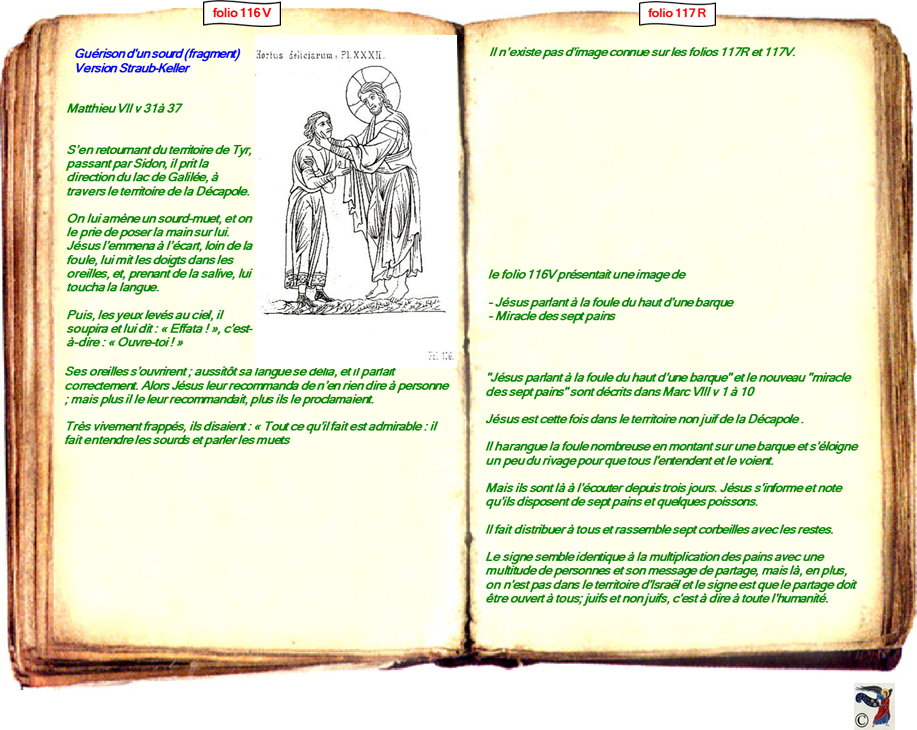 folio 116V
Guérison d'un sourd (fragment)
Version Straub-Keller
Hortus deliciarum, Pl. XXXII.
Matthieu VII v 31à 37
S'en retournant du territoire de Tyr,
passant par Sidon, il prit la
direction du lac de Galilée, à
travers le territoire de la Décapole.
On lui amène un sourd-muet, et on
le prie de poser la main sur lui.
Jésus l'emmena à l'écart, loin de la
foule, lui mit les doigts dans les
oreilles, et, prenant de la salive, lui
toucha la langue.
Puis, les yeux levés au ciel, il
soupira et lui dit : « Effata ! », c'est-
à-dire : « Ouvre-toi ! »
Ses oreilles s'ouvrirent ; aussitôt sa langue se délia, et il parlait
correctement. Alors Jésus leur recommanda de n'en rien dire à personne
; mais plus il le leur recommandait, plus ils le proclamaient.
Très vivement frappés, ils disaient : « Tout ce qu'il fait est admirable : il
fait entendre les sourds et parler les muets
folio 117R
Il n'existe pas d'image connue sur les folios 117R et 117V.
le folio 116V présentait une image de
- Jésus parlant à la foule du haut d'une barque
- Miracle des sept pains
"Jésus parlant à la foule du haut d'une barque" et le nouveau "miracle
des sept pains" sont décrits dans Marc VIII v 1 à 10
Jésus est cette fois dans le territoire non juif de la Décapole .
Il harangue la foule nombreuse en montant sur une barque et s'éloigne
un peu du rivage pour que tous l'entendent et le voient.
Mais ils sont là à l'écouter depuis trois jours. Jésus s'informe et note
qu'ils disposent de sept pains et quelques poissons.
Il fait distribuer à tous et rassemble sept corbeilles avec les restes.
Le signe semble identique à la multiplication des pains avec une
multitude de personnes et son message de partage, mais là, en plus,
on n'est pas dans le territoire d'Israël et le signe est que le partage doit
être ouvert à tous; juifs et non juifs, c'est à dire à toute l'humanité.
©